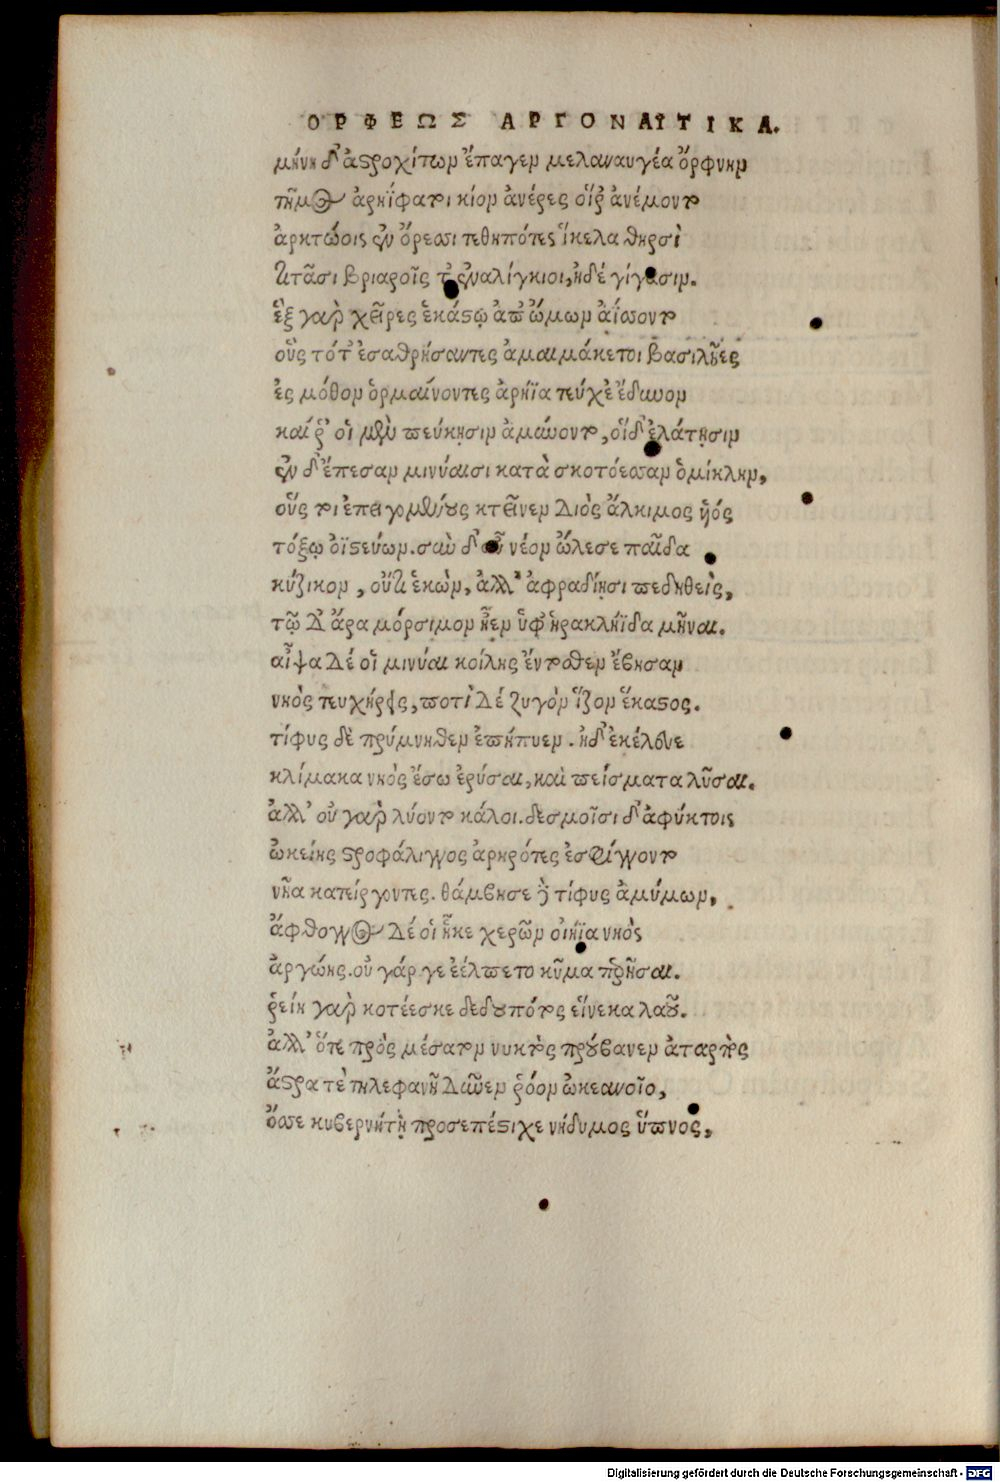 ΟΡΦΕΩΣ ΑΡΓΟΝΑΥΤΙΚΑ.
μήνη δ' ἀστροχίτων ἔπαγεν μελαναυγέα ὄρφνην
τῆμος ἀρηΐφατοι κίον ἀνέρες οἵ ῥ' ἀνέμοντο
ἀρκτώοις ἐν ὄρεσσι τεθηπότες ἴκελα θηρσὶ
τιτᾶσι βριαροῖς τ' ἐναλίγκιοι, ἠδέ γίγασιν.
ἓξ γαρ χεῖρες ἑκάστῳ ἀπ' ὤμων ἀΐσσοντο
οὓς τότ' ἐσαθρήσαντες ἀμαιμάκετοι βασιλῆες
ἐς μόθον ὁρμαίνοντες ἀρήϊα τεύχε' ἔδυνον
καί ῥ' οἱ μὲν πεύκῃσιν ἀμύνοντο, οἵ δ' ἐλάτῃσιν
ἐν δ' ἔπεσαν μινύαισι κατὰ σκοτόεσσαν ὁμίκλην,
οὕς τοι ἐπειγομένους κτεῖνεν Διὸς ἄλκιμος υἱός
τόξῳ ὀϊστεύων. σὺν δ' οὖν νέον ὤλεσε παῖδα
κύζικον, οὔτι ἑκὼν, ἀλλ' ἀφραδίῃσι πεδηθεὶς,
τῷ δ' ἄρα μόρσιμον ἦεν ὑφ' ἡρακλήϊδα μῆναι.
αἶψα δέ οἱ μινύαι κοίλης ἔντοθεν ἔβησαν
νηὸς τευχήρεις, ποτὶ δέ ζυγὸν ἷζον ἕκαστος.
τίφυς δὲ πρύμνηθεν ἐπήπυεν. ἠδ' ἐκέλευε
κλίμακα νηὸς ἔσω ἐρύσαι, καὶ πείσματα λῦσαι.
ἀλλ' οὐ γαρ λύοντο κάλοι. δεσμοῖσι δ' ἀφύκτοις
ὠκείης στροφάλιγγος ἀρηρότες ἐσφίγγοντο
νῆα κατείργοντες. θάμβησε δὲ τίφυς ἀμύμων,
ἄφθογγος δέ οἱ ἧκε χερῶν οἰήϊα νηὸς
ἀργώης. οὐ γάρ γε ἐέλπετο κῦμα περῆσαι.
ῥείη γαρ κοτέεσκε δεδουπότος εἵνεκα λαοῦ.
ἀλλ' ὅτε πρὸς μέσατον νυκτὸς προύβαινεν ἀταρπὸς
ἄστρα τὲ τηλεφανῆ δῦνεν ῥόον ὠκεανοῖο,
ὄσσε κυβερνήτῃ προσεπέστιχε νήδυμος ὕπνος,